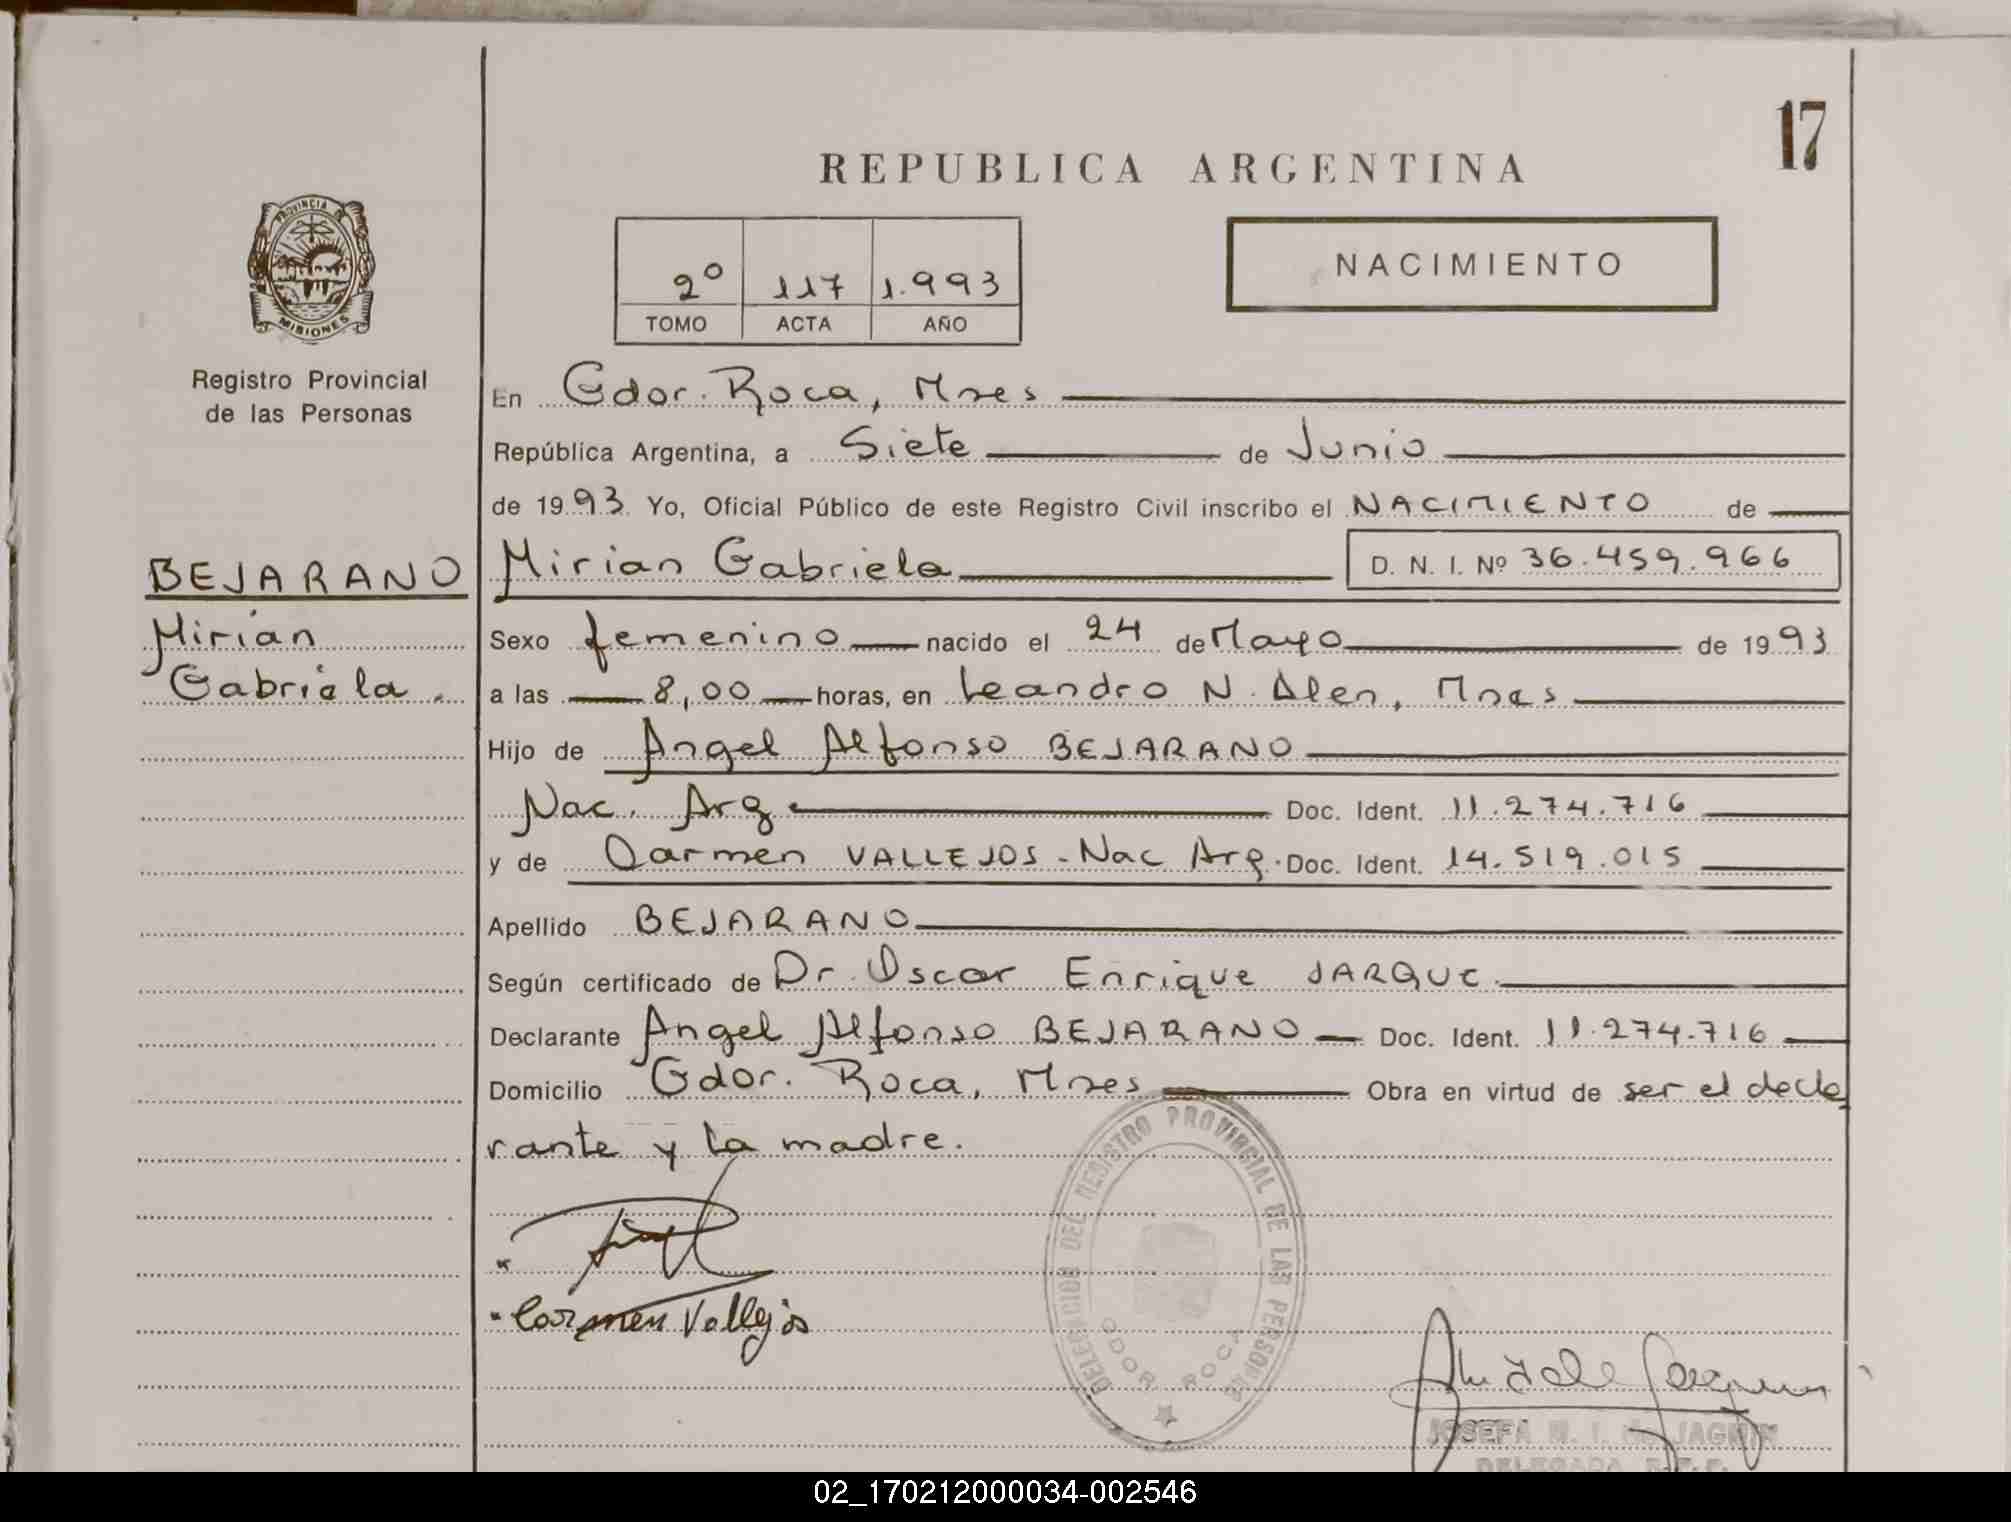 17
REPUBLICA ARGENTINA
PROVINCIA DE
MISIONES
2º 117 1.993
TOMO ACTA AÑO
NACIMIENTO
Registro Provincial
de las Personas
En Gdor. Roca, Mnes
República Argentina, a Siete de Junio
de 1993 Yo, Oficial Público de este Registro Civil inscribo el NACIMIENTO de
BEJARANO
Mirian
Gabriela.
Mirian Gabriela D. N. I. Nº 36.459.966
Sexo femenino nacido el 24 de Mayo de 1993
a las 8,00 horas, en Leandro N. Alen, Mnes
Hijo de Angel Alfonso BEJARANO
Nac. Arg. Doc. Ident. 11.274.716
y de Carmen VALLEJOS - Nac Arg. Doc. Ident. 14.519.015
Apellido BEJARANO
Según certificado de Dr. Oscar Enrique JARQUE.
Declarante Angel Alfonso BEJARANO Doc. Ident. 11.274.716
Domicilio Gdor. Roca, Mnes Obra en virtud de ser el decla
rante y la madre.
Carmen Vallejos
DELEGACION DEL REGISTRO PROVINCIAL DE LAS PERSONAS
GDOR ROCA
JOSEFA M. I. de JAGMIN
DELEGADA R.P.P.
02_170212000034-002546